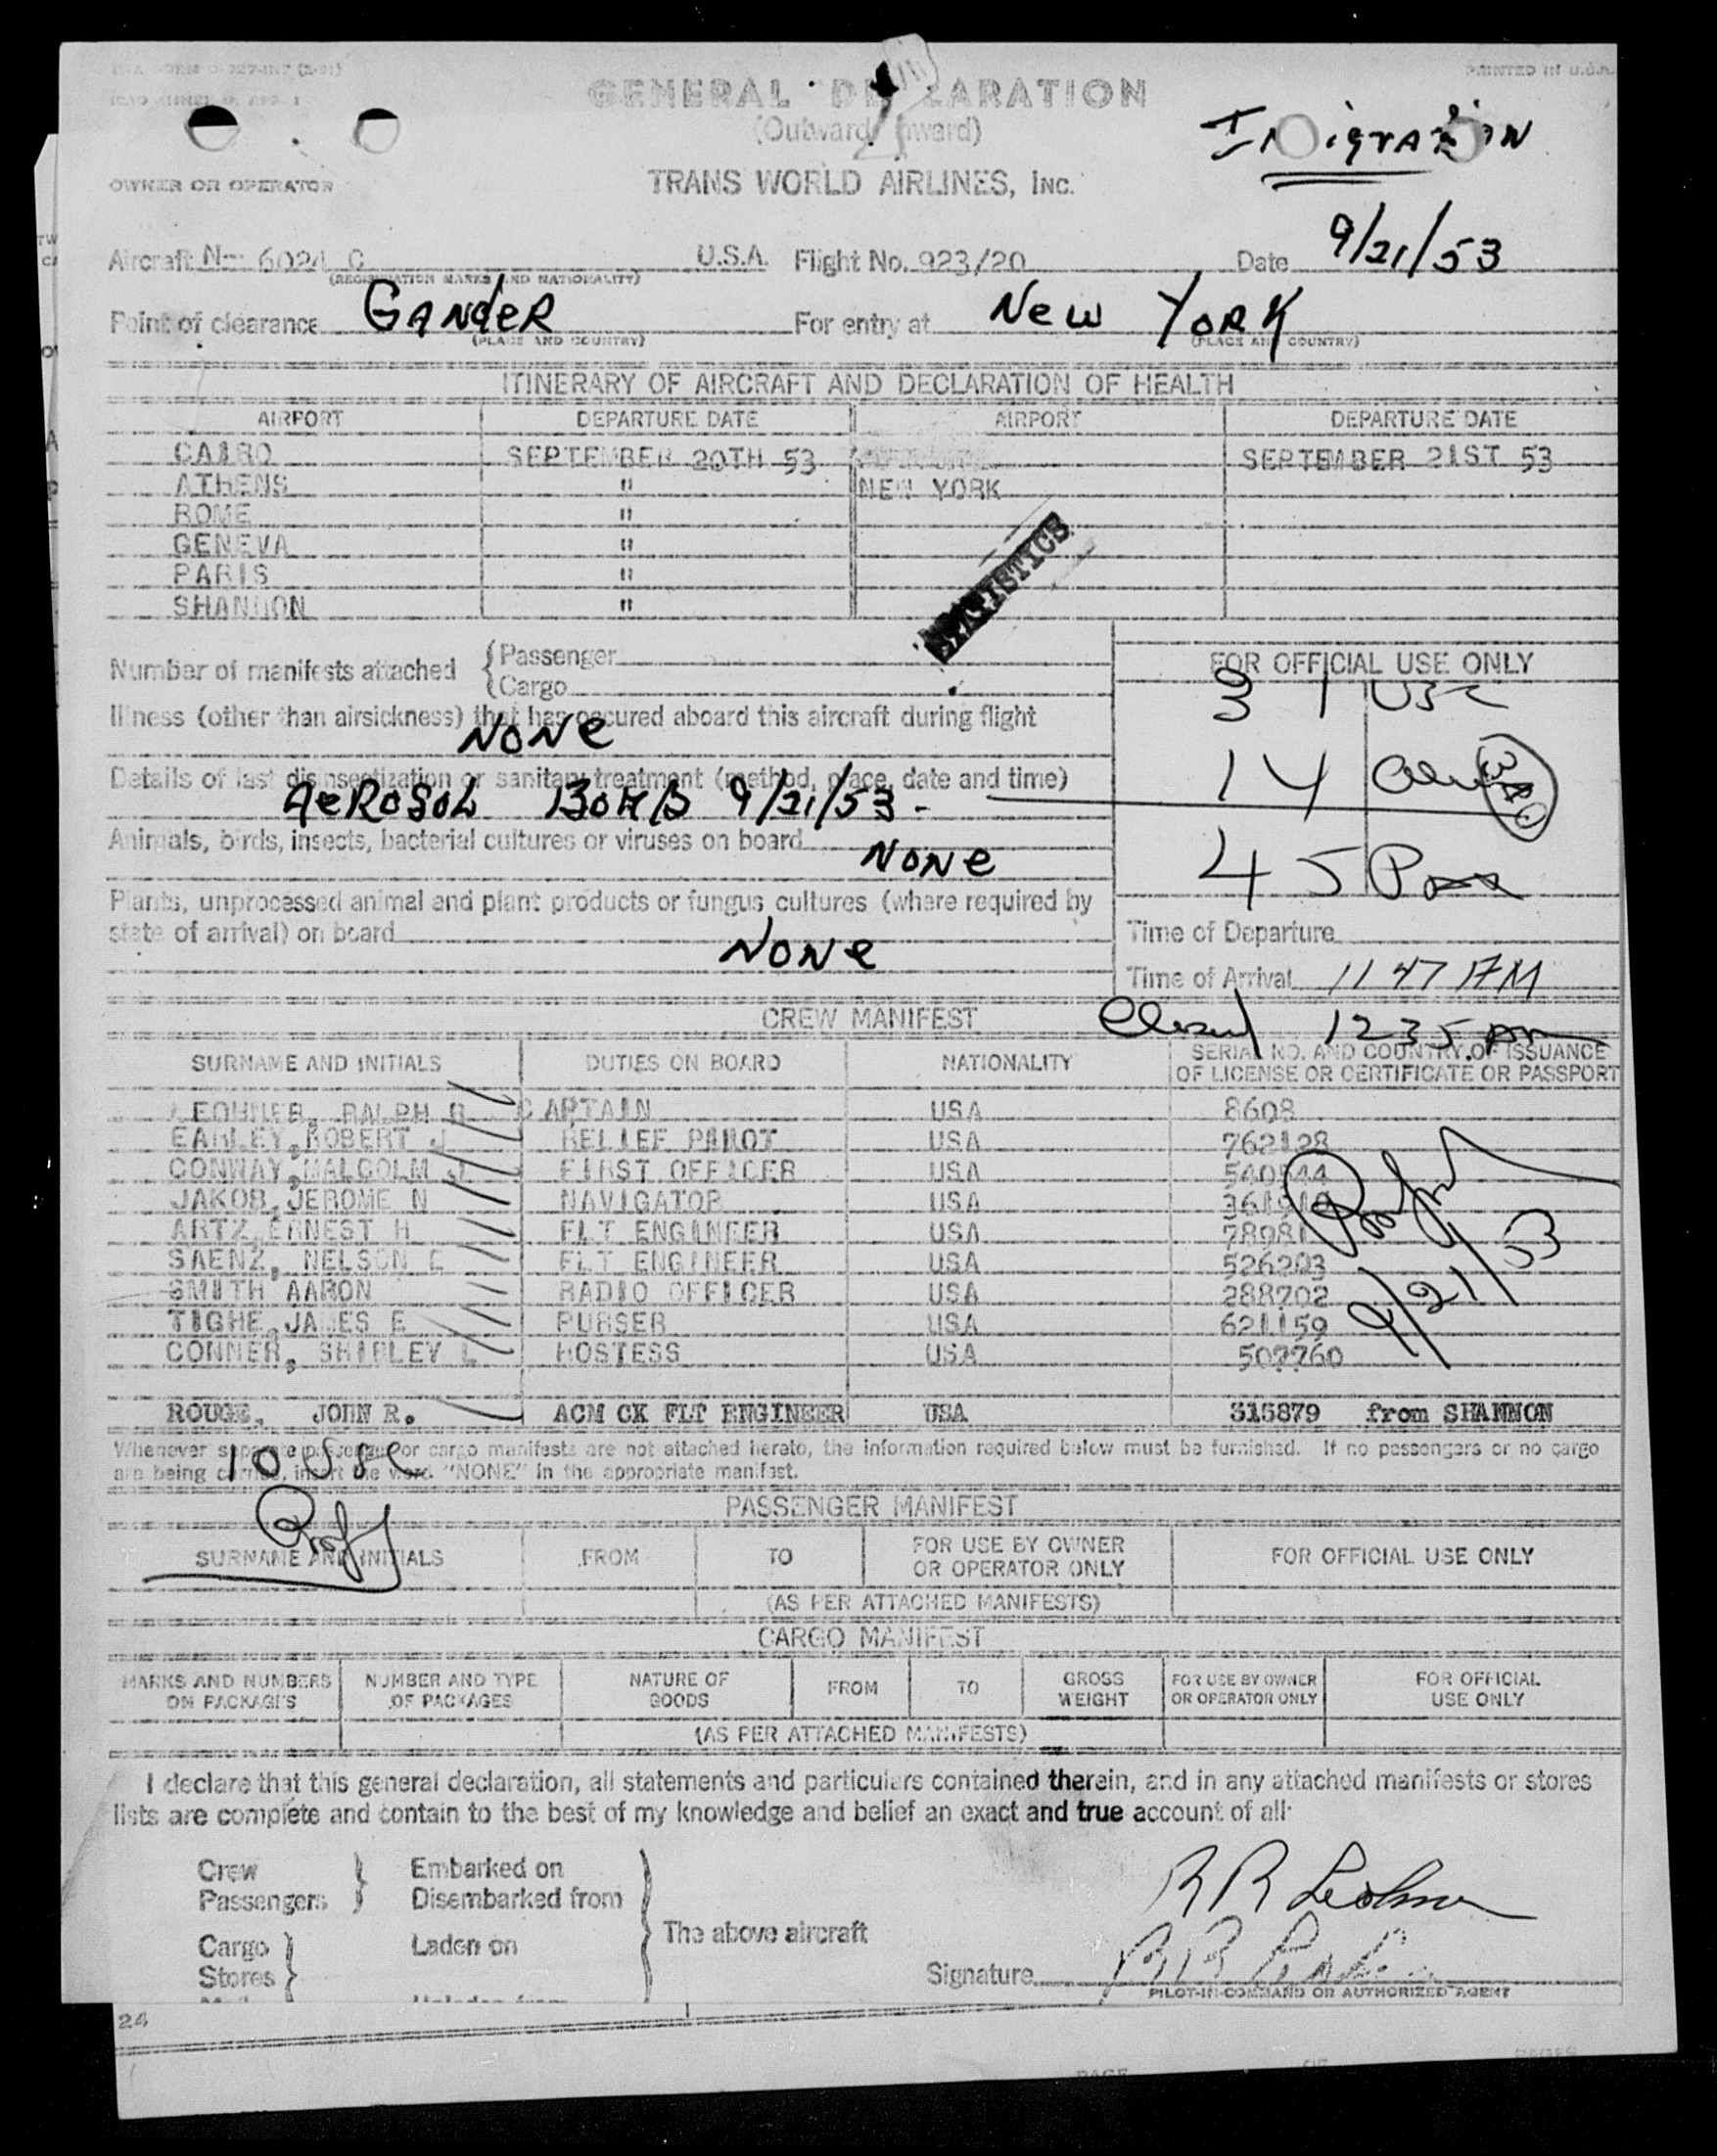 PRINTED IN U.S.A.
GENERAL DECLARATION
(Outward/Inward)
IMIGRATION
OWNER OR OPERATOR
TRANS WORLD AIRLINES, INC.
Aircraft N-- 6024 C U.S.A. Flight No. 923/20 Date 9/21/53
(REGISTRATION MARKS AND NATIONALITY)
Point of clearance GANdeR For entry at New YORK
(PLACE AND COUNTRY) (PLACE AND COUNTRY)
ITINERARY OF AIRCRAFT AND DECLARATION OF HEALTH
AIRPORT DEPARTURE DATE AIRPORT DEPARTURE DATE
CAIRO SEPTEMBER 20TH 53 SEPTEMBER 21ST 53
ATHENS " NEW YORK
ROME "
GENEVA "
PARIS "
SHANNON "
STATISTICS
Number of manifests attached { Passenger
Cargo
FOR OFFICIAL USE ONLY
31 USC
Illness (other than airsickness) that has occured aboard this aircraft during flight
NoNe
14
Details of last disinsectization or sanitary treatment (method, place, date and time)
AeRosoL BOMB 9/21/53 -
Animals, birds, insects, bacterial cultures or viruses on board NoNe
45
Plants, unprocessed animal and plant products or fungus cultures (where required by
state of arrival) on board NoNe
Time of Departure
Time of Arrival 11 47 AM
CREW MANIFEST
Closed 1235 pm
SURNAME AND INITIALS DUTIES ON BOARD NATIONALITY SERIAL NO. AND COUNTRY OF ISSUANCE
OF LICENSE OR CERTIFICATE OR PASSPORT
LEOHNER, RALPH R CAPTAIN USA 8608
EARLEY, ROBERT J RELIEF PILOT USA 762128
CONWAY, MALCOLM J FIRST OFFICER USA
JAKOB, JEROME N NAVIGATOR USA
ARTZ, ERNEST H FLT ENGINEER USA
SAENZ, NELSON E FLT ENGINEER USA 526203
SMITH AARON RADIO OFFICER USA 288702
TIGHE, JAMES E PURSER USA 621159
CONNER, SHIRLEY L HOSTESS USA 507760
9/21/53
ROUGE, JOHN R. ACM CK FLT ENGINEER USA 315879 from SHANNON
Whenever separate passenger or cargo manifests are not attached hereto, the information required below must be furnished. If no passengers or no cargo
are being carried, insert the word "NONE" in the appropriate manifest.
10 USC
PASSENGER MANIFEST
SURNAME AND INITIALS FROM TO FOR USE BY OWNER OR OPERATOR ONLY FOR OFFICIAL USE ONLY
(AS PER ATTACHED MANIFESTS)
CARGO MANIFEST
MARKS AND NUMBERS ON PACKAGES NUMBER AND TYPE OF PACKAGES NATURE OF GOODS FROM TO GROSS WEIGHT FOR USE BY OWNER OR OPERATOR ONLY FOR OFFICIAL USE ONLY
(AS PER ATTACHED MANIFESTS)
I declare that this general declaration, all statements and particulars contained therein, and in any attached manifests or stores
lists are complete and contain to the best of my knowledge and belief an exact and true account of all:
Crew Embarked on
Passengers Disembarked from
The above aircraft
Cargo Laden on
Stores
Signature
PILOT-IN-COMMAND OR AUTHORIZED AGENT
24
PAGE OF PAGES